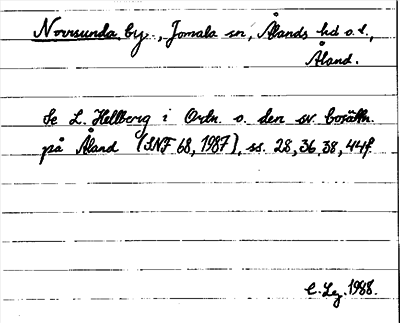 Norrsunda by., Jomala sn, Ålands hd o. l.,
Åland.
Se L. Hellberg i Ortn. o. den sv. bosättn.
på Åland (SNF 68, 1987), ss. 28, 36, 38, 44f.
C. Lg. 1988.